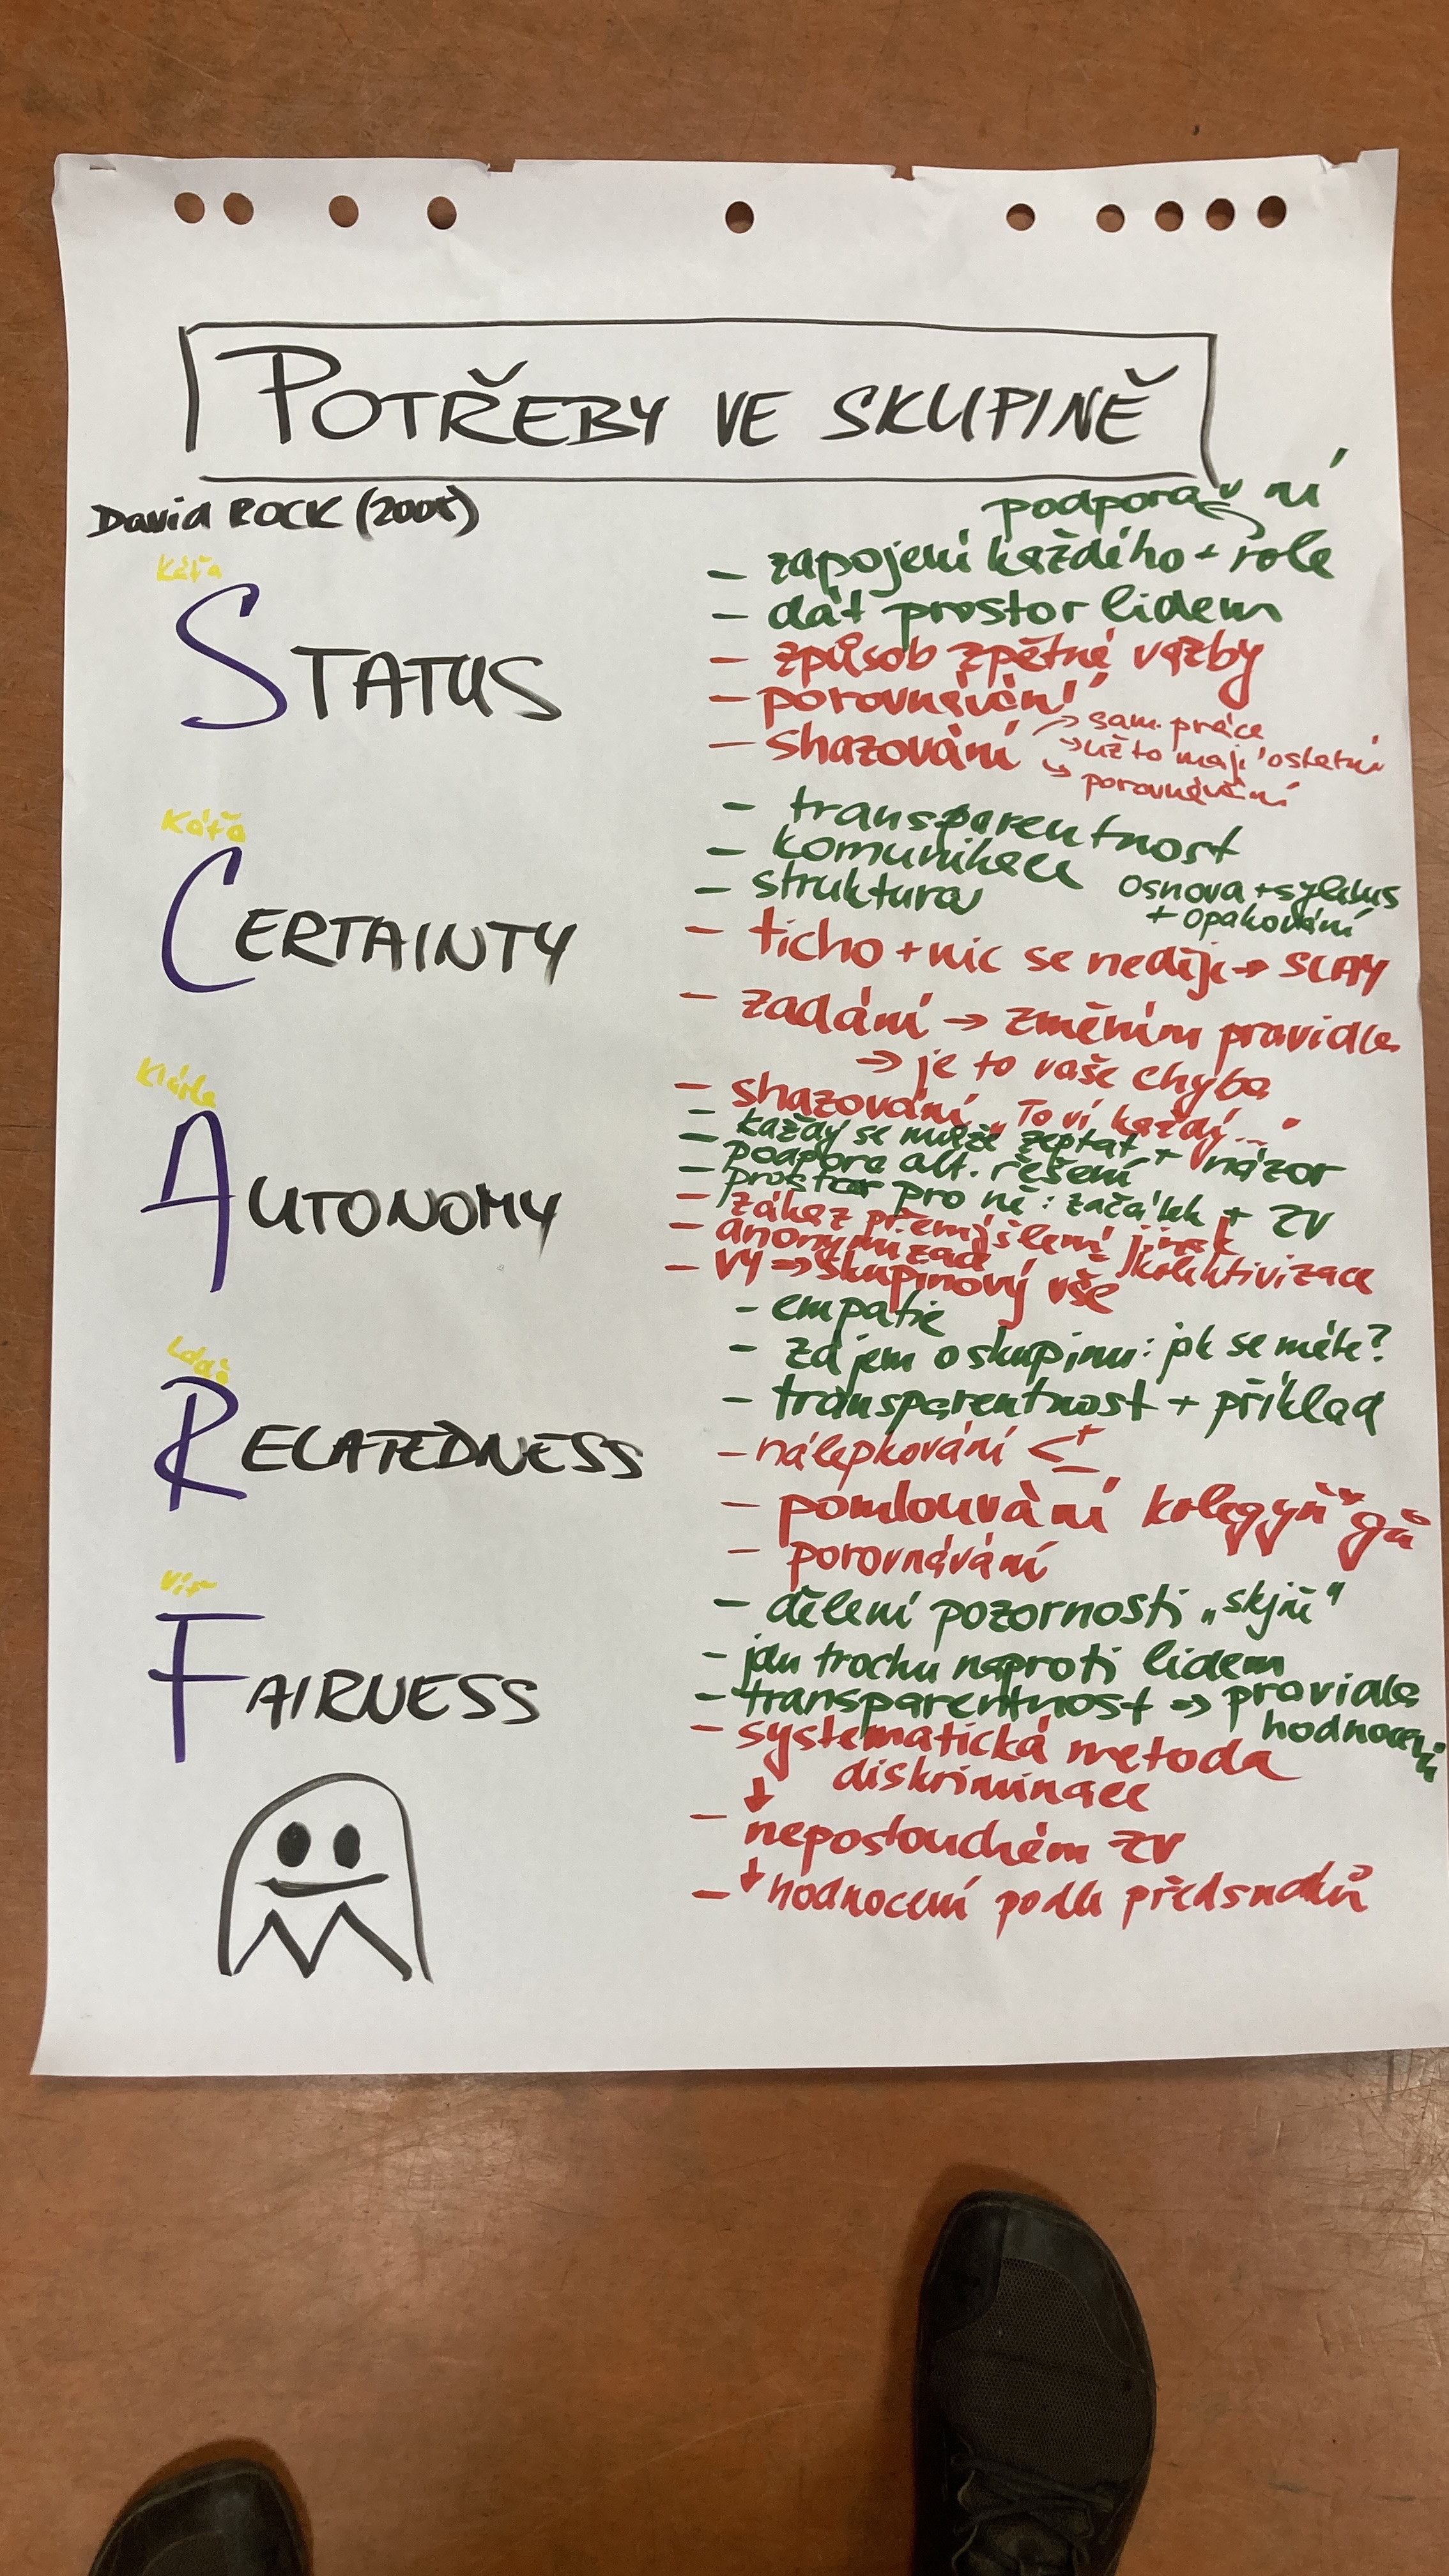 POTŘEBY VE SKUPINĚ
David ROCK
podpora v ní
- zapojení každého + role
- dát prostor lidem
Káťa
STATUS
- způsob zpětné vazby
- porovnávání
- shazování
→ sam. práce
→ už to mají ostatní
→ porovnávání
Káťa
CERTAINTY
- transparentnost
- komunikace
- struktura
osnova + sylabus
+ opakování
- ticho + nic se neděje → SLAY
- zadání → změním pravidla
→ je to vaše chyba
Klárka
AUTONOMY
- shazování „To ví každý..."
- každý se může zeptat + názor
- podpora alt. řešení
- prostor pro ně: začátek + ZV
- zákaz přemýšlení jinak
- anonymizace kolektivizace
- VY → skupinový vše
RELATEDNESS
- empatie
- zájem o skupinu: jak se máte?
- transparentnost + příklad
- nálepkování < + -
- pomlouvání kolegyň gů
- porovnávání
Víť
FAIRNESS
- dělení pozornosti
- jdu trochu naproti lidem
- transparentnost → pravidla
hodnocení
- systematická metoda
diskriminace
↓
- neposlouchám ZV
↓
- hodnocení podle předsudků